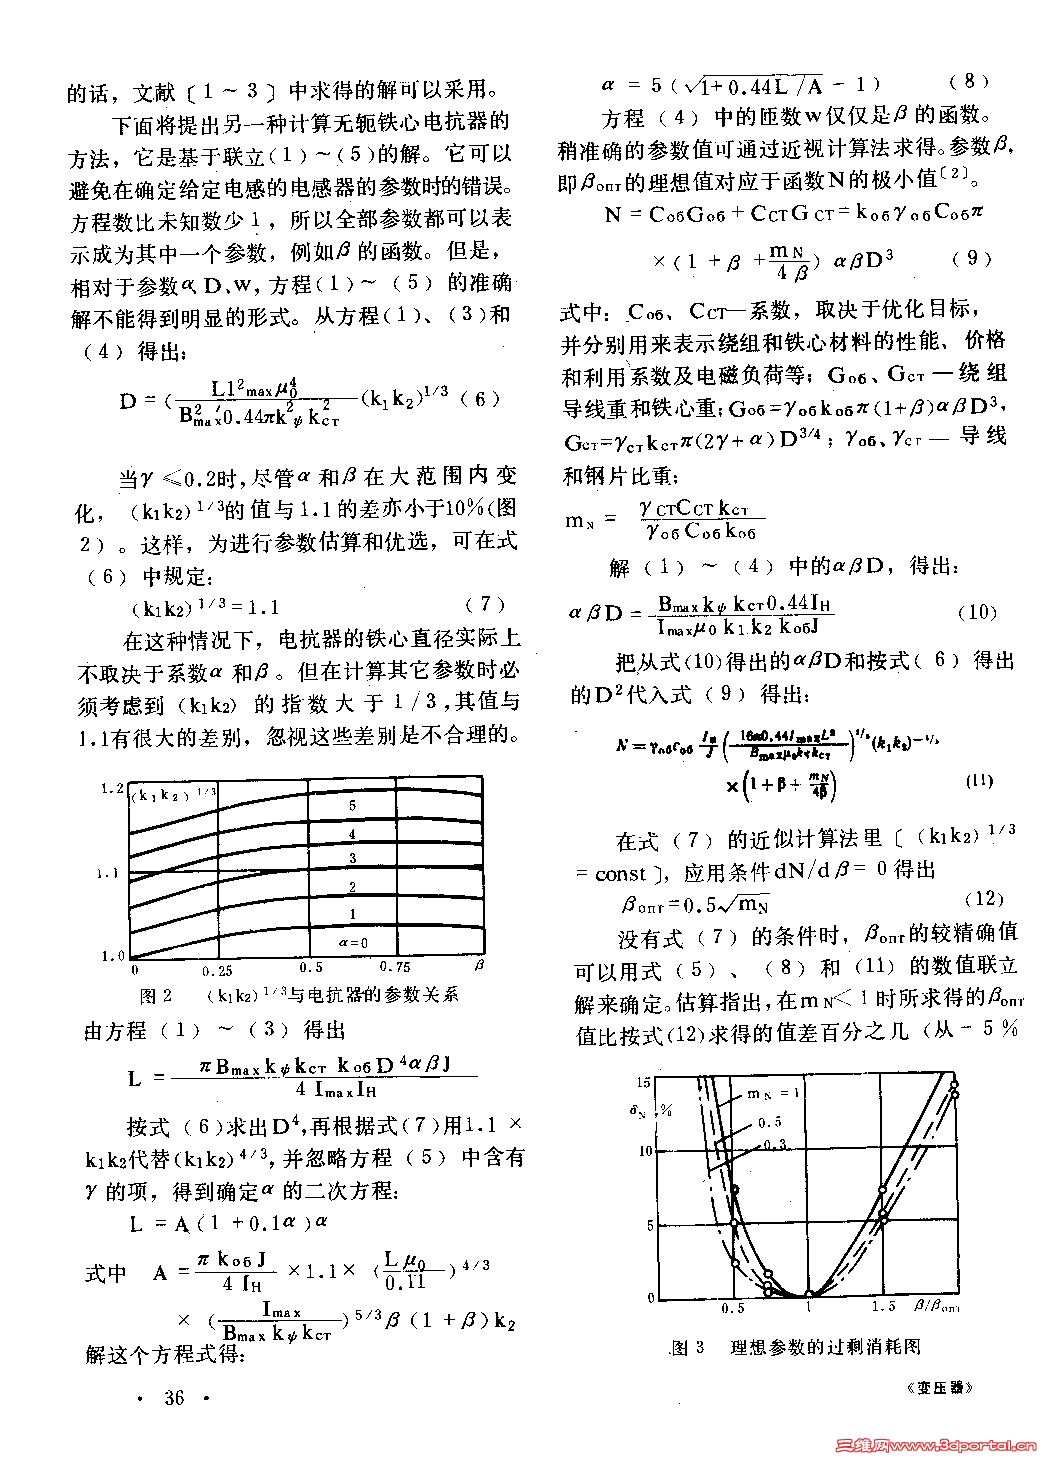 的话，文献〔1～3〕中求得的解可以采用。
下面将提出另一种计算无轭铁心电抗器的
方法，它是基于联立(1)～(5)的解。它可以
避免在确定给定电感的电感器的参数时的错误。
方程数比未知数少1，所以全部参数都可以表
示成为其中一个参数，例如β的函数。但是，
相对于参数α、D、W，方程(1)～（5）的准确
解不能得到明显的形式。从方程(1)、(3)和
（4）得出：
D=(LI²maxμ⁴₀/B²max0.44πk²ψk²ст)(k₁k₂)¹/³（6）
当γ≤0.2时，尽管α和β在大范围内变
化，（k₁k₂）¹/³的值与1.1的差亦小于10%(图
2）。这样，为进行参数估算和优选，可在式
（6）中规定：
（k₁k₂）¹/³=1.1（7）
在这种情况下，电抗器的铁心直径实际上
不取决于系数α和β。但在计算其它参数时必
须考虑到（k₁k₂）的指数大于1/3，其值与
1.1有很大的差别，忽视这些差别是不合理的。
1.2
(k₁k₂)¹/³
5
4
1.1
3
2
1
α=0
1.0
0 0.25 0.5 0.75 β
图2 （k₁k₂）¹/³与电抗器的参数关系
由方程（1）～（3）得出
L=πBmaxkψkстkобD⁴αβJ/4ImaxIн
按式（6)求出D⁴，再根据式(7)用1.1×
k₁k₂代替(k₁k₂)⁴/³，并忽略方程（5）中含有
γ的项，得到确定α的二次方程：
L=A(1+0.1α)α
式中 A=πkобJ/4Iн×1.1×（Lμ₀/0.11）⁴/³
×（Imax/Bmaxkψkст）⁵/³β（1+β)k₂
解这个方程式得：
· 36 ·
α=5(√1+0.44L/A-1)（8）
方程（4）中的匝数W仅仅是β的函数。
稍准确的参数值可通过近视计算法求得。参数β，
即βопт的理想值对应于函数N的极小值〔2〕。
N=CобGоб+CстGст=kобγобCобπ
×(1+β+mN/4β)αβD³（9）
式中：Cоб、Cст—系数，取决于优化目标，
并分别用来表示绕组和铁心材料的性能、价格
和利用系数及电磁负荷等；Gоб、Gст—绕组
导线重和铁心重；Gоб=γобkобπ(1+β)αβD³，
Gст=γстkстπ(2γ+α)D³/4；γоб、γст—导线
和钢片比重；
mN=γстCстkст/γобCобkоб
解（1）～（4）中的αβD，得出：
αβD=Bmaxkψkст0.44Iн/Imaxμ₀k₁k₂kобJ (10)
把从式(10)得出的αβD和按式（6）得出
的D²代入式（9）得出：
×(1+β+mN/4β) (11)
在式（7）的近似计算法里〔（k₁k₂）¹/³
=const〕，应用条件dN/dβ=0得出
βопт=0.5√mN (12)
没有式（7）的条件时，βопт的较精确值
可以用式（5）、（8）和（11）的数值联立
解来确定。估算指出，在mN<1时所求得的βопт
值比按式(12)求得的值差百分之几（从-5%
15
δN,%
mN=1
0.5
0.3
10
5
0
0.5 1 1.5 β/βопт
图3 理想参数的过剩消耗图
《变压器》
三维网www.3dportal.cn